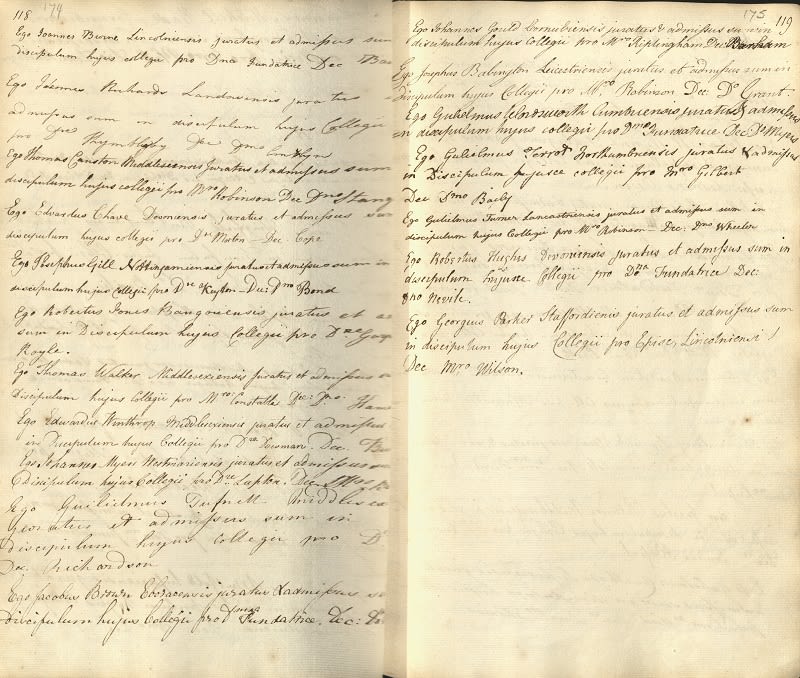 118 174
Ego Joannes Burne Lincolniensis juratus et admissus sum
discipulum hujus collegii pro Dna Fundatrice Dec
Ego Joannes Richards Landavensis juratus
admissus sum in discipulum hujus Collegii
pro Dre Dec Dmo
Ego Thomas Causton Middlesexensis Juratus et admissus sum
discipulum hujus collegii pro Mro Robinson Dec Dno Stang
Ego Edvardus Chave Devoniensis juratus et admissus su
discipulum hujus collegio pro Dre Moton Dec Cope
Ego Josephus Gill Nottingamiensis juratus et admissus sum in
discipulum hujus collegii pro Dre Keyton Dec: Dno Bond
Ego Robertus Jones Bangorensis juratus et a
sum in Discipulum hujus Collegii pro Dre
Royle.
Ego Thomas Walker Middlesexiensis Juratus et admissus
Discipulum hujus Collegii pro Mro Constable Dec: Dno.
Ego Edwardus Winthrop Middlesexiensis juratus et admissus
in Discipulum hujus Collegii pro Dre Dec.
Ego Johannes Myers Westmariensis juratus et admissus
Discipulum hujus Collegii pro Dre Lupton. Dec.
Ego Guilielmus Tufnell Middlesex
juratus et admissus sum in
discipulum hujus collegii pro D
Dec Richardson
Ego Jacobus Brown Eboracensis juratus & admissus s
Discipulum hujus Collegii pro Dmna Fundatrice. Dec:
175 119
Ego Johannes Gould Cornubiensis juratus & admissus sum in
discipulum hujus Collegii pro Mro Riplingham Dec Banham
Ego Josephus Babington Leicestriensis juratus et admissus sum in
discipulum hujus Collegii pro Mro Robinson Dec: Do Grant
Ego Gulielmus Wordsworth Cumbriensis juratus & admissus
in discipulum hujus collegii pro Dma Fundatrice Dec Do Meyer
Ego Gulielmus Terrot Northumbriensis juratus & admissus
in Discipulum hujusce collegii pro Mro Gilbert
Dec Dmo Baily
Ego Gulielmus Turner Lancastriensis juratus et admissus sum in
discipulum hujus Collegii pro Mro Robinson Dec: Dno Wheeler
Ego Robertus Hughes Devoniensis juratus et admissus sum in
discipulum hujusce Collegii pro Dna Fundatrice Dec:
Dno Nevile.
Ego Georgius Parker Staffordiensis juratus et admissus sum
in discipulum hujus Collegii pro Episc, Lincolniensi
Dec Mro Wilson.